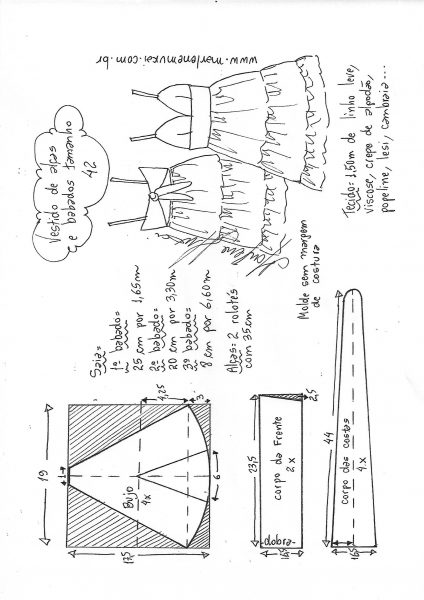 www.marlenemukai.com.br
Vestido de alças
e babados tamanho
42
Tecido: 1,50m de linho leve,
viscose, crepe de algodão,
popeline, lesi, cambraia...
Saia=
1º babado=
25 cm por 1,65m
2º babado=
20 cm por 3,30m
3º babado=
8 cm por 6,60m
Alças: 2 rolotês
com 35cm
Molde sem margem
de costura
19
1
4,25
3
Bujo
4x
6
17,5
23,5
2,5
corpo da Frente
2x
dobra
44
corpo das costas
4x